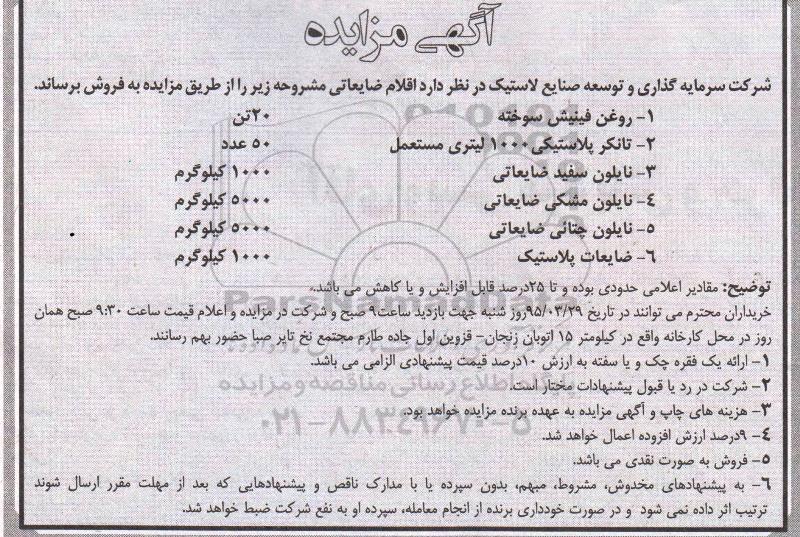 آگهی مزایده
شرکت سرمایه گذاری و توسعه صنایع لاستیک در نظر دارد اقلام ضایعاتی مشروحه زیر را از طریق مزایده به فروش برساند.
۱- روغن فینیش سوخته ۲۰تن
۲- تانکر پلاستیکی۱۰۰۰ لیتری مستعمل ۵۰ عدد
۳- نایلون سفید ضایعاتی ۱۰۰۰ کیلوگرم
۴- نایلون مشکی ضایعاتی ۵۰۰۰ کیلوگرم
۵- نایلون جتائی ضایعاتی ۵۰۰۰ کیلوگرم
۶- ضایعات پلاستیک ۱۰۰۰ کیلوگرم
توضیح: مقادیر اعلامی حدودی بوده و تا ۲۵درصد قابل افزایش و یا کاهش می باشد.
ParsNamadData
خریداران محترم می توانند در تاریخ ۹۵/۰۳/۲۹روز شنبه جهت بازدید ساعت۹ صبح و شرکت در مزایده و اعلام قیمت ساعت ۹:۳۰ صبح همان
روز در محل کارخانه واقع در کیلومتر ۱۵ اتوبان زنجان- قزوین اول جاده طارم مجتمع نخ تایر صبا حضور بهم رسانند.
۱- ارائه یک فقره چک و یا سفته به ارزش ۱۰درصد قیمت پیشنهادی الزامی می باشد.
پایگاه اطلاع رسانی مناقصه و مزایده
۲- شرکت در رد یا قبول پیشنهادات مختار است.
۳- هزینه های چاپ و آگهی مزایده به عهده برنده مزایده خواهد بود.
۰۲۱-۸۸۳۴۹۶۷۰-۵
۴- ۹درصد ارزش افزوده اعمال خواهد شد.
۵- فروش به صورت نقدی می باشد.
۶- به پیشنهادهای مخدوش، مشروط، مبهم، بدون سپرده یا با مدارک ناقص و پیشنهادهایی که بعد از مهلت مقرر ارسال شوند
ترتیب اثر داده نمی شود و در صورت خودداری برنده از انجام معامله، سپرده او به نفع شرکت ضبط خواهد شد.